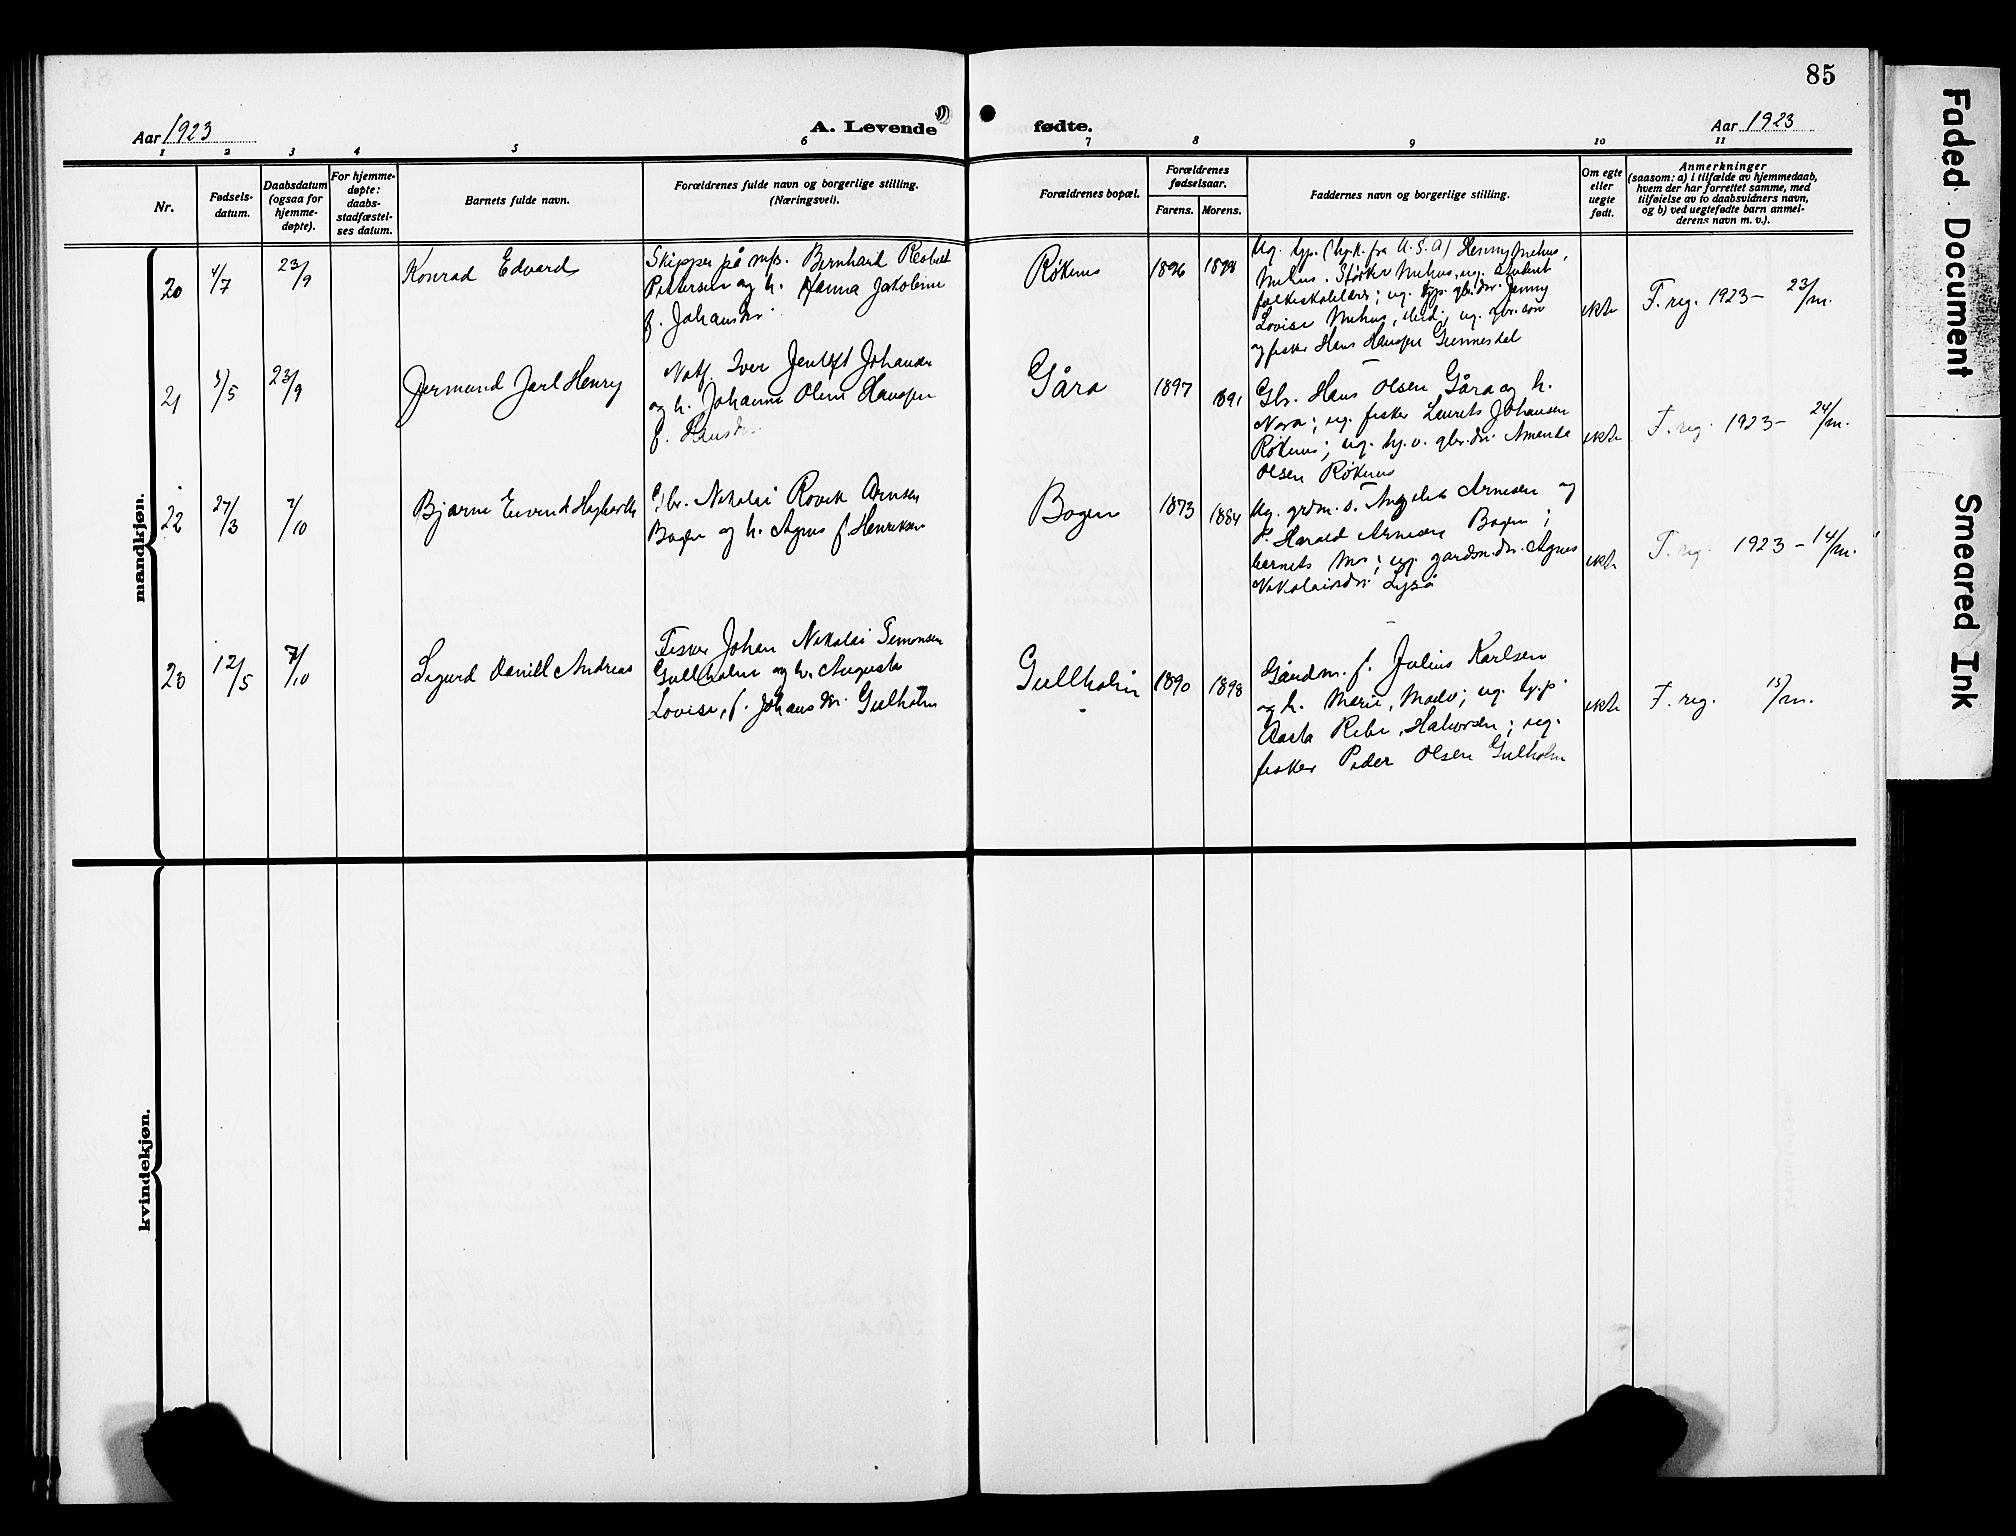 85
Aar 1923
A. Levende
fødte.
Aar 1923
1 2 3 4 5 6 7 8 9 10 11
Nr.
Fødsels-
datum.
Daabsdatum
(ogsaa for
hjemme-
døpte).
For hjemme-
døpte:
daabs-
stadfæstel-
ses datum.
Barnets fulde navn.
Forældrenes fulde navn og borgerlige stilling.
(Næringsvei).
Forældrenes bopæl.
Forældrenes
fødselsaar.
Farens. Morens.
Faddernes navn og borgerlige stilling.
Om egte
eller
uegte
født.
Anmerkninger
(saasom: a) i tilfælde av hjemmedaab,
hvem der har forrettet samme, med
tilføielse av to daabsvidners navn,
og b) ved uegtefødte barn anmel-
derens navn m. v.).
mandkjøn.
20
4/7
23/9
Konrad Edvard
Skipper på m/s. Bernhard Robert
Pettersen og h. Hanna Jakobine
f. Johansdr.
Røkenes
1896
1898
Ug. hjp. (hjk. fra U.S.A) Henny Mehus,
Mehus. Størker Mehus, ug. student
folkeskolelærer; ug. hjp. gbr.dr. Jenny
Lovise Mehus, ug. gbr. søn
og fisker Hans Hansen Gunnesdal
ekte
F. reg. 1923 - 23/m.
21
5/5
23/9
Jermund Jarl Henry
Notf. Iver Jentoft Johansen
og h. Johanne Oline Hansen
f. Hansdr.
Gåra
1897
1891
Gbr. Hans Olsen Gåra og h.
Nora; ug. fisker Laurits Johansen
Røkenes; ug. hj.v. gbr.dr. Amanda
Olsen Røkenes
ekte
F. reg. 1923 - 24/m.
22
27/3
7/10
Bjarne Eivind Hagbarth
Gbr. Nikolai Rovik Arnesen
Bogen og h. Agnes f. Henriksen
Bogen
1873
1884
Ug. grdm.d. Angelik Arnesen og
s. Harald Arnesen Bogen;
barnets mor; ug. gardm.dr. Agnes
Nikolaisdr. Lyså
ekte
F. reg. 1923 - 14/m.
23
12/5
7/10
Sigurd Daniel Andreas
Fisker Johan Nikolai Simonsen
Gullholm og h. Augusta
Lovise, f. Johansdr. Gullholm
Gullholm
1890
1898
Gårdm. f. Julius Karlsen
og h. Marie, Modv; ug. hjp.
Aasta Halvorsen; ug.
fisker Peder Olsen Gullholm
ekte
F. reg. 15/m.
kvindekjøn.
Faded Document
Smeared Ink